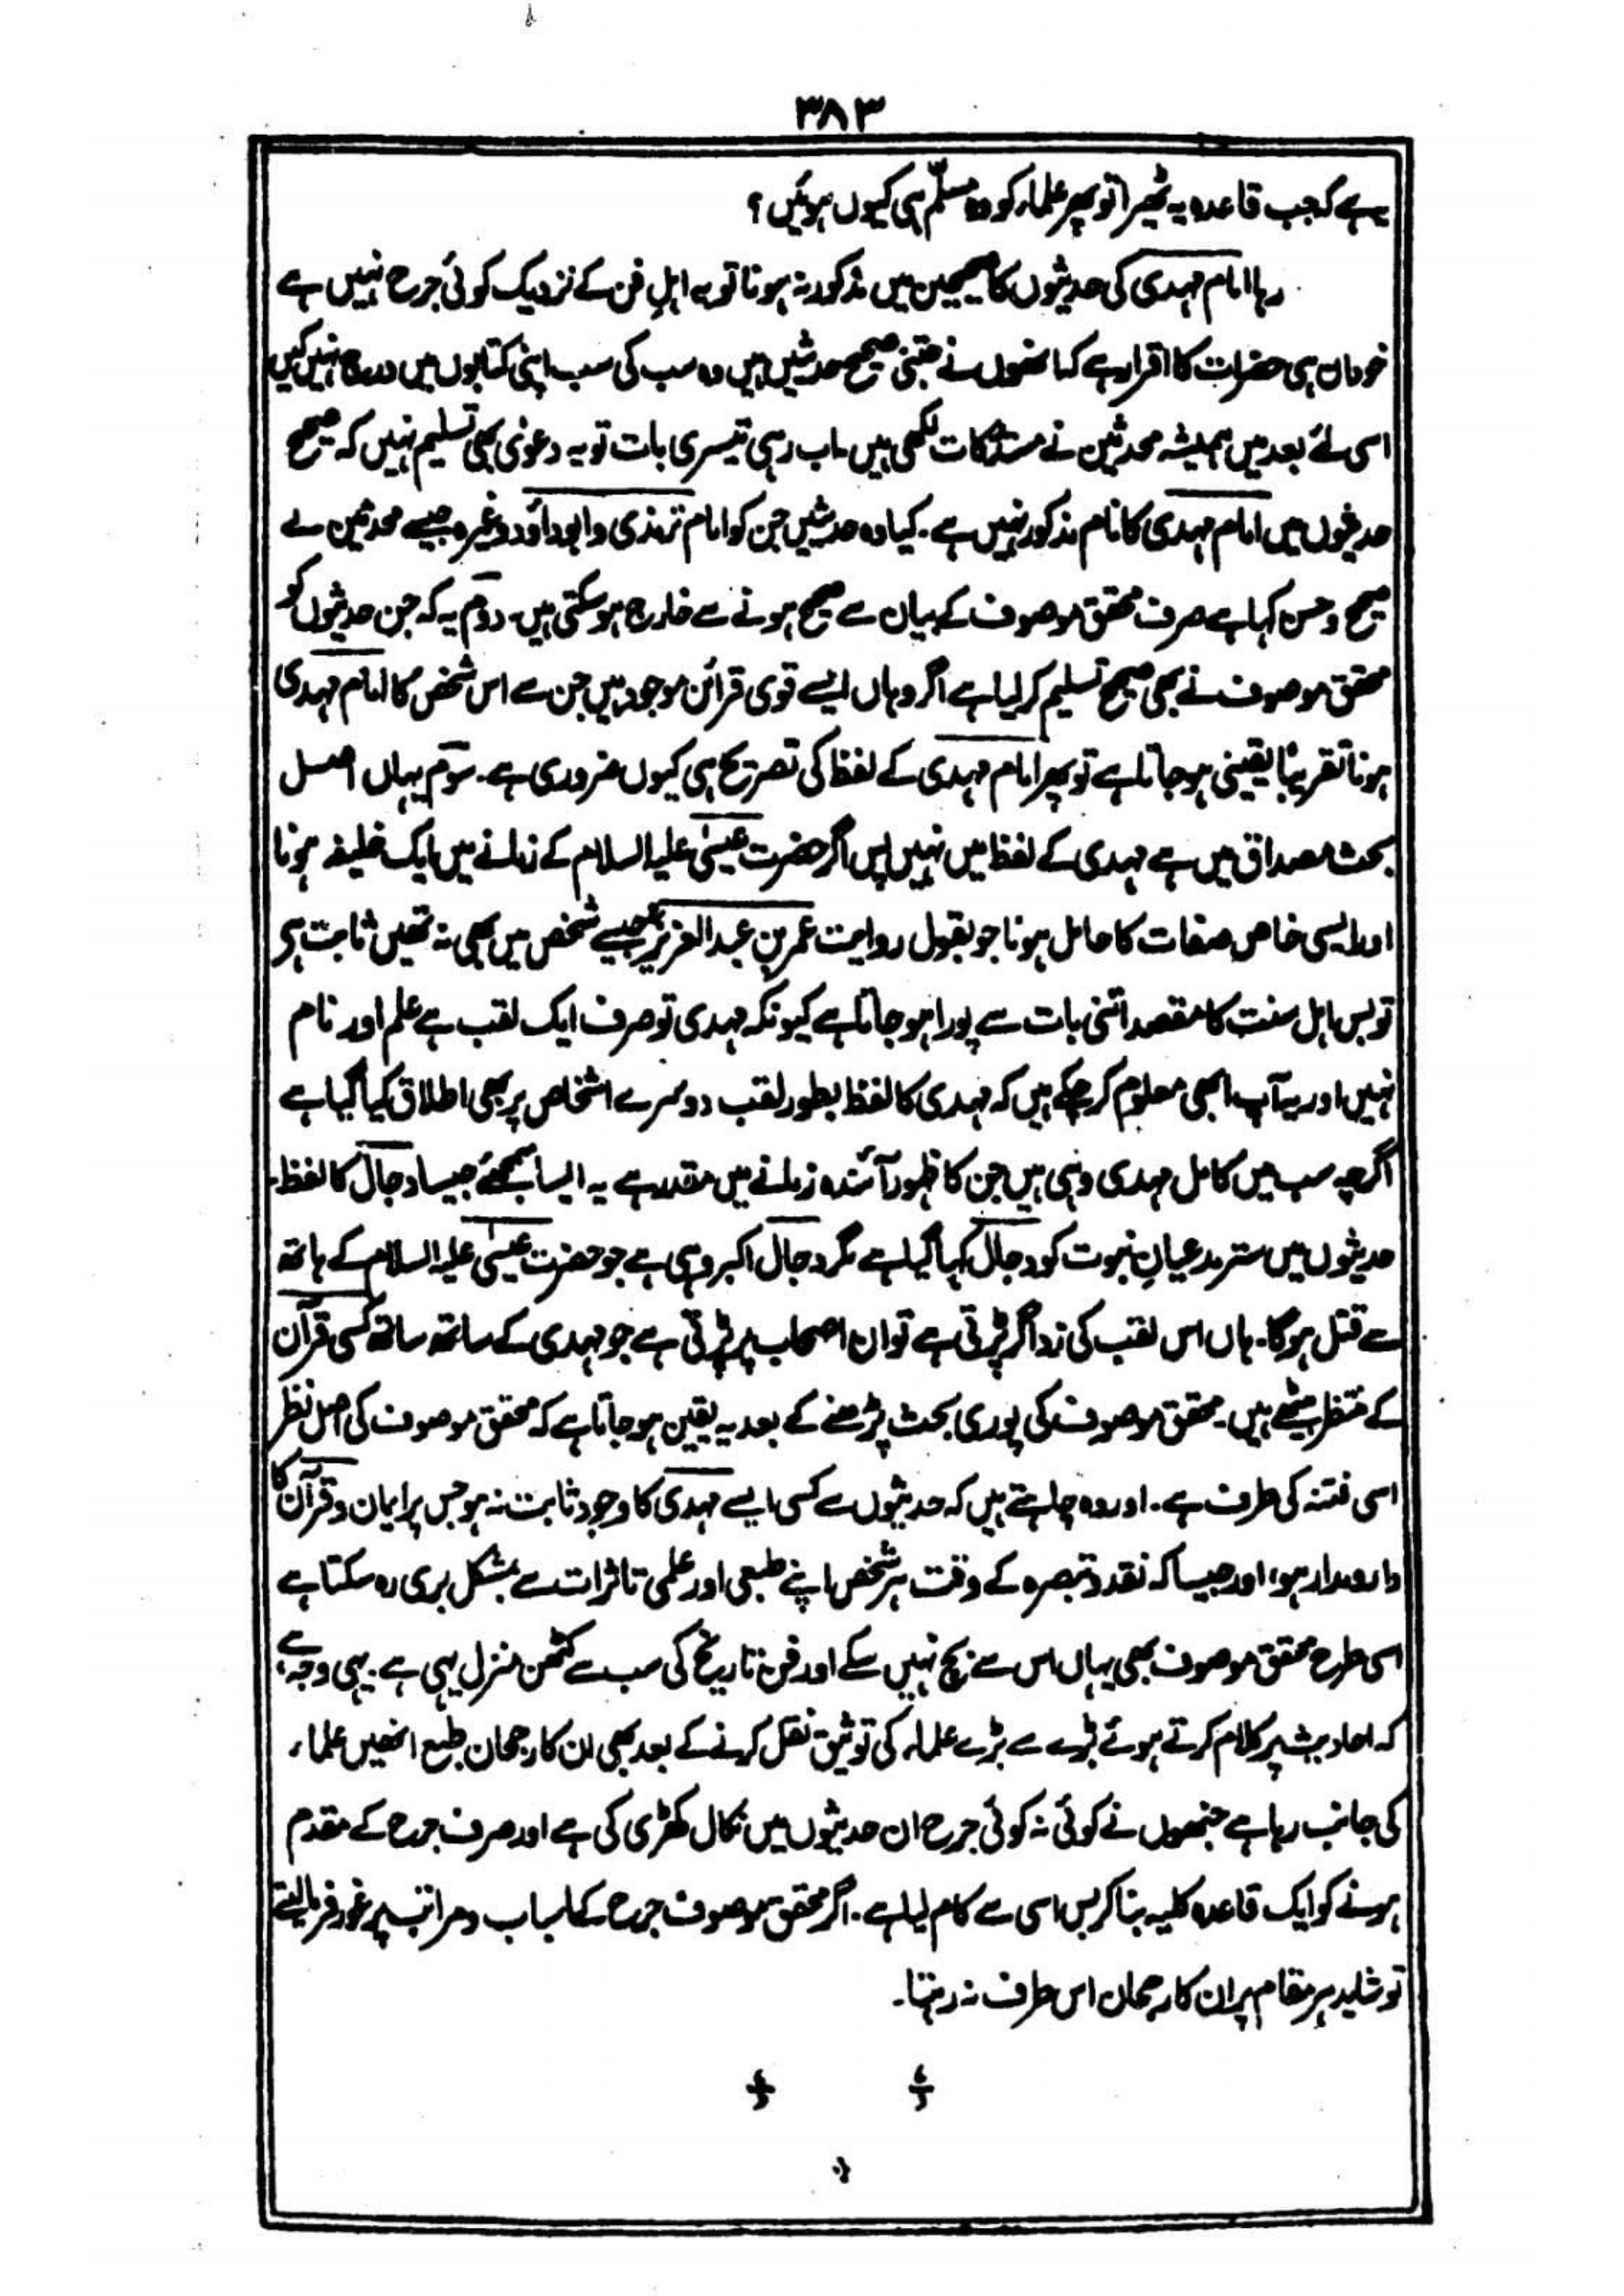 ۳۸۳
یہ ہے کہ جب قاعدہ یہ ٹھیرا تو پھر علماء کو وہ مسلّم ہی کیوں ہوئیں؟
رہا امام مہدی کی حدیثوں کا صحیحین میں مذکور نہ ہونا تو یہ اہلِ فن کے نزدیک کوئی جرح نہیں ہے
خود ان ہی حضرات کا اقرار ہے کہ انھوں نے جتنی صحیح حدیثیں ہیں وہ سب کی سب اپنی کتابوں میں درج نہیں کیں
اسی لئے بعد میں ہمیشہ محدثین نے مستدرکات لکھی ہیں۔ اب رہی تیسری بات تو یہ دعوٰی بھی تسلیم نہیں کہ صحیح
حدیثوں میں امام مہدی کا نام مذکور نہیں ہے۔ کیا وہ حدیثیں جن کو امام ترمذی و ابوداؤد وغیرہ جیسے محدثین نے
صحیح و حسن کہا ہے صرف محقق موصوف کے بیان سے صحیح ہونے سے خارج ہو سکتی ہیں۔ دوم یہ کہ جن حدیثوں کو
محقق موصوف نے بھی صحیح تسلیم کر لیا ہے اگر وہاں ایسے قوی قرائن موجود ہیں جن سے اس شخص کا امام مہدی
ہونا تقریبًا یقینی ہو جاتا ہے تو پھر امام مہدی کے لفظ کی تصریح ہی کیوں ضروری ہے۔ سوم یہاں اصل
بحث مصداق میں ہے مہدی کے لفظ میں نہیں پس اگر حضرت عیسٰی علیہ السلام کے زمانے میں ایک خلیفہ ہونا
اور ایسی خاص صفات کا حامل ہونا جو بقول روایت عمر بن عبدالعزیزؒ جیسے شخص میں بھی نہ تھیں ثابت ہو
تو بس اہل سنت کا مقصد اتنی بات سے پورا ہو جاتا ہے کیونکہ مہدی تو صرف ایک لقب ہے علم اور نام
نہیں اور یہ آپ ابھی معلوم کر چکے ہیں کہ مہدی کا لفظ بطور لقب دوسرے اشخاص پر بھی اطلاق کیا گیا ہے
اگرچہ سب میں کامل مہدی وہی ہیں جن کا ظہور آئندہ زمانے میں مقدر ہے یہ ایسا سمجھئے جیسا دجال کا لفظ۔
حدیثوں میں ستر مدعیانِ نبوت کو دجال کہا گیا ہے مگر دجال اکبر وہی ہے جو حضرت عیسٰی علیہ السلام کے ہاتھ
سے قتل ہوگا۔ ہاں اس لقب کی زد اگر پڑتی ہے تو ان اصحاب پر پڑتی ہے جو مہدی کے ساتھ ساتھ کسی قرآن
کے منتظر بیٹھے ہیں۔ محقق موصوف کی پوری بحث پڑھنے کے بعد یہ یقین ہو جاتا ہے کہ محقق موصوف کی اصل نظر
اسی فتنہ کی طرف ہے۔ اور وہ چاہتے ہیں کہ حدیثوں سے کسی ایسے مہدی کا وجود ثابت نہ ہو جس پر ایمان و قرآن کا
دارومدار ہو، اور جیسا کہ نقد و تبصرہ کے وقت ہر شخص اپنے طبعی اور علمی تاثرات سے بمشکل بری رہ سکتا ہے
اسی طرح محقق موصوف بھی یہاں اس سے بچ نہیں سکے اور فن تاریخ کی سب سے کٹھن منزل یہی ہے۔ یہی وجہ ہے
کہ احادیث پر کلام کرتے ہوئے بڑے سے بڑے علماء کی توثیق نقل کرنے کے بعد بھی ان کا رجحان طبع انھیں علماء
کی جانب رہا ہے جنھوں نے کوئی نہ کوئی جرح ان حدیثوں میں نکال کھڑی کی ہے اور صرف جرح کے مقدم
ہونے کو ایک قاعدہ کلیہ بنا کر بس اسی سے کام لیا ہے۔ اگر محقق موصوف جرح کے اسباب و مراتب پر غور فرما لیتے
تو شاید ہر مقام پر ان کا رجحان اس طرف نہ رہتا۔